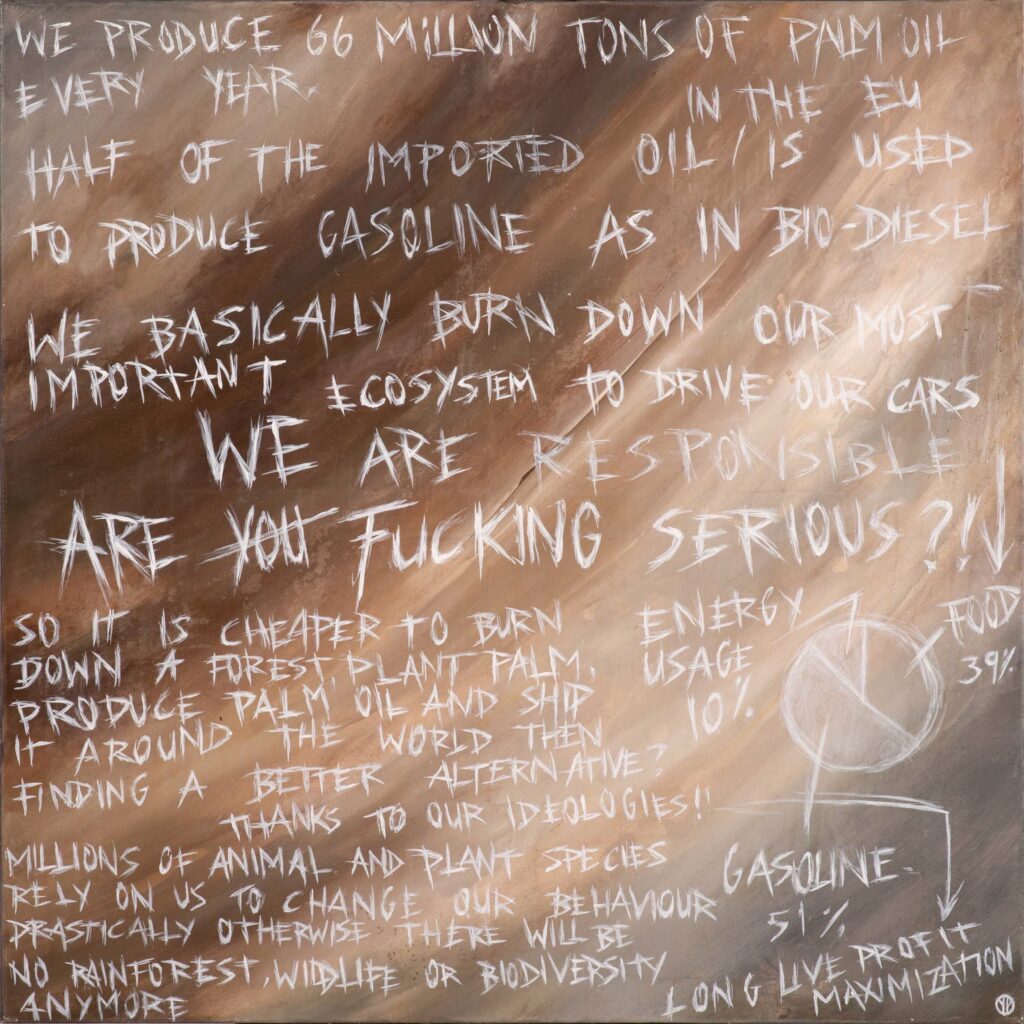 WE PRODUCE 66 MILLION TONS OF PALM OIL
EVERY YEAR.
IN THE EU
HALF OF THE IMPORTED OIL / IS USED
TO PRODUCE GASOLINE AS IN BIO-DIESEL
WE BASICALLY BURN DOWN OUR MOST
IMPORTANT ECOSYSTEM TO DRIVE OUR CARS
WE ARE RESPONSIBLE
ARE YOU FUCKING SERIOUS?!
SO IT IS CHEAPER TO BURN
DOWN A FOREST, PLANT PALM,
PRODUCE PALM OIL AND SHIP
IT AROUND THE WORLD THEN
FINDING A BETTER ALTERNATIVE?
THANKS TO OUR IDEOLOGIES!!
ENERGY
USAGE
10%
FOOD
39%
GASOLINE
51%
MILLIONS OF ANIMAL AND PLANT SPECIES
RELY ON US TO CHANGE OUR BEHAVIOUR
DRASTICALLY OTHERWISE THERE WILL BE
NO RAINFOREST, WIDLIFE OR BIODIVERSITY
ANYMORE
LONG LIVE PROFIT
MAXIMIZATION